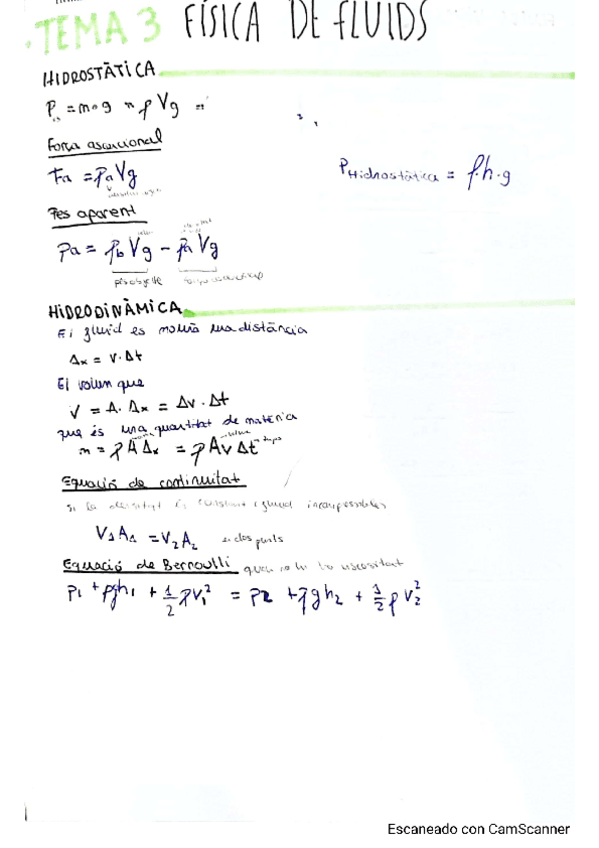 TEMA 3 FÍSICA DE FLUIDS
HIDROSTÀTICA
P = m·g = ρVg =
Força ascensional
Fa = ρaVg
P Hidrostàtica = ρ·h·g
Pes aparent
Pa = ρb Vg - ρa Vg
pes objecte
HIDRODINÀMICA
El fluid es mourà una distància
Δx = v·Δt
El volum que
V = A·Δx = Av·Δt
que és una quantitat de matèria
m = ρAΔx = ρAvΔt
Equació de continuïtat
si la densitat és constant i fluid incompressible
V1A1 = V2A2
Equació de Bernoulli quan no hi ha viscositat
P1 + ρgh1 + 1/2 ρv1² = P2 + ρgh2 + 1/2 ρv2²
Escaneado con CamScanner